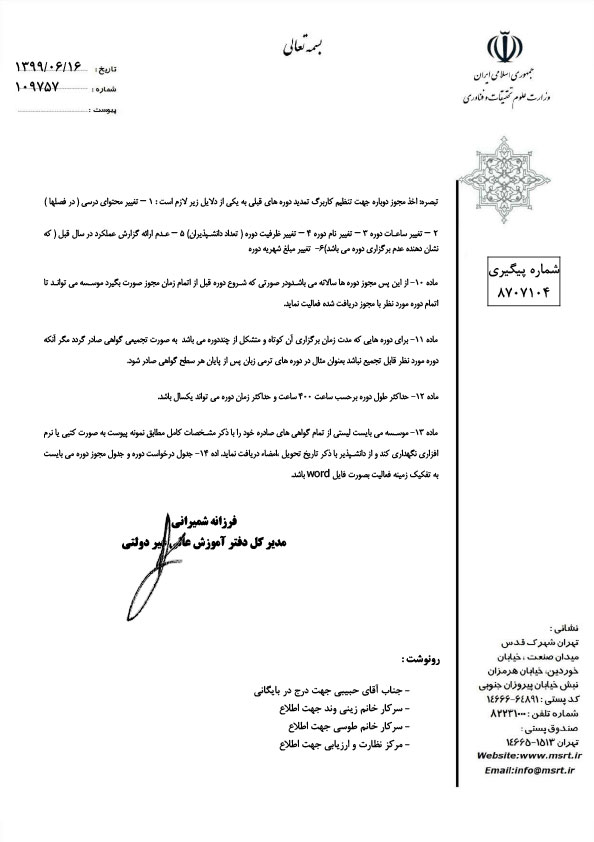 بسمه تعالی
جمهوری اسلامی ایران
وزارت علوم تحقیقات و فناوری
تاریخ : ۱۳۹۹/۰۶/۱۶
شماره : ۱۰۹۷۵۷
پیوست :
شماره پیگیری
۸۷۰۷۱۰۴
تبصره: اخذ مجوز دوباره جهت تنظیم کاربرگ تمدید دوره های قبلی به یکی از دلایل زیر لازم است : ۱ – تغییر محتوای درسی ( در فصلها )
۲ – تغییر ساعات دوره ۳ – تغییر نام دوره ۴ – تغییر ظرفیت دوره ( تعداد دانشپذیران) ۵ – عدم ارائه گزارش عملکرد در سال قبل ( که
نشان دهنده عدم برگزاری دوره می باشد)۶- تغییر مبلغ شهریه دوره
ماده ۱۰- از این پس مجوز دوره ها سالانه می باشدودر صورتی که شروع دوره قبل از اتمام زمان مجوز صورت بگیرد موسسه می تواند تا
اتمام دوره مورد نظر با مجوز دریافت شده فعالیت نماید.
ماده ۱۱- برای دوره هایی که مدت زمان برگزاری آن کوتاه و متشکل از چنددوره می باشد به صورت تجمیعی گواهی صادر گردد مگر آنکه
دوره مورد نظر قابل تجمیع نباشد بعنوان مثال در دوره های ترمی زبان پس از پایان هر سطح گواهی صادر شود.
ماده ۱۲- حداکثر طول دوره برحسب ساعت ۴۰۰ ساعت و حداکثر زمان دوره می تواند یکسال باشد.
ماده ۱۳- موسسه می بایست لیستی از تمام گواهی های صادره خود را با ذکر مشخصات کامل مطابق نمونه پیوست به صورت کتبی یا نرم
افزاری نگهداری کند و از دانشپذیر با ذکر تاریخ تحویل ،امضاء دریافت نماید. اده ۱۴- جدول درخواست دوره و جدول مجوز دوره می بایست
به تفکیک زمینه فعالیت بصورت فایل word باشد.
فرزانه شمیرانی
مدیر کل دفتر آموزش عالی غیر دولتی
رونوشت :
- جناب آقای حبیبی جهت درج در بایگانی
- سرکار خانم زینی وند جهت اطلاع
- سرکار خانم طوسی جهت اطلاع
- مرکز نظارت و ارزیابی جهت اطلاع
نشانی :
تهران شهرک قدس
میدان صنعت ، خیابان
خوردین، خیابان هرمزان
نبش خیابان پیروزان جنوبی
کد پستی : ۶۴۸۹۱-۱۴۶۶۶
شماره تلفن : ۸۲۲۳۱۰۰۰
صندوق پستی :
تهران ۱۵۱۳-۱۴۶۶۵
Website:www.msrt.ir
Email:info@msrt.ir